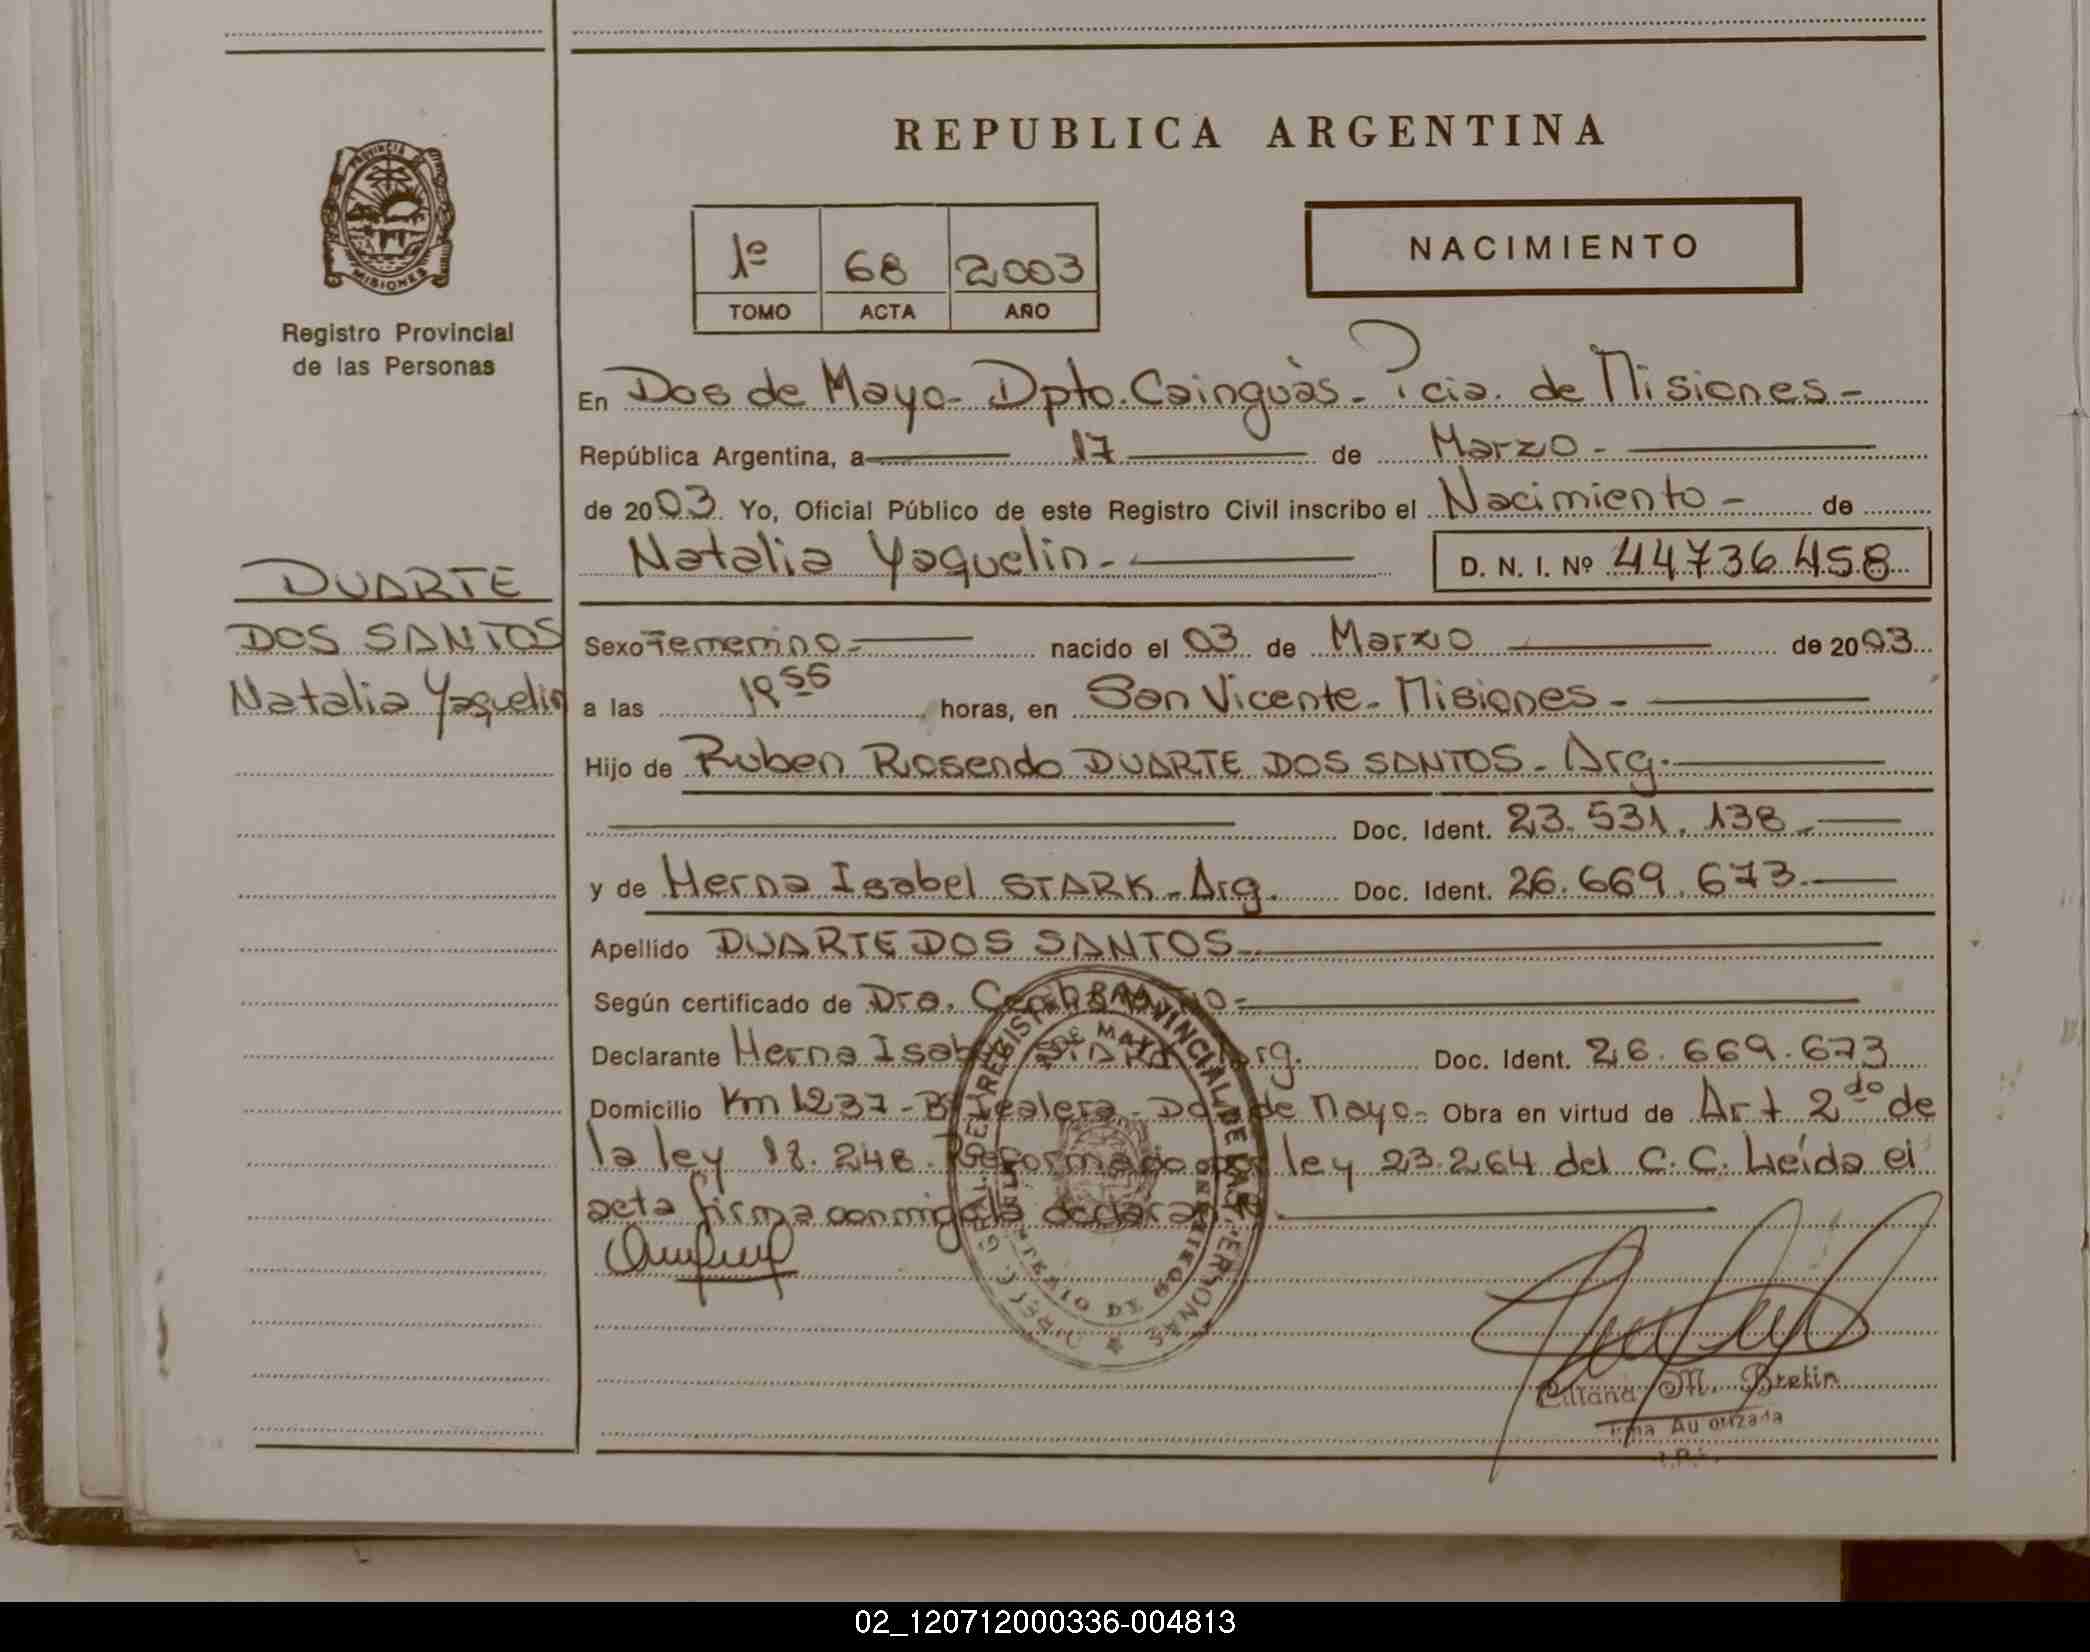 REPUBLICA ARGENTINA
PROVINCIA DE MISIONES
Registro Provincial
de las Personas
1º 68 2003
TOMO ACTA AÑO
NACIMIENTO
En Dos de Mayo- Dpto. Cainguàs- Pcia. de Misiones-
República Argentina, a 17 de Marzo-
de 2003. Yo, Oficial Público de este Registro Civil inscribo el Nacimiento- de
Natalia Yaquelin- D. N. I. Nº 44736458
DUARTE
DOS SANTOS
Natalia Yaquelin
Sexo Femenino- nacido el 03 de Marzo de 2003
a las horas, en San Vicente- Misiones-
Hijo de Ruben Rosendo DUARTE DOS SANTOS- Arg.
Doc. Ident. 23.531.138-
y de Herna Isabel STARK- Arg. Doc. Ident. 26.669.673.-
Apellido DUARTE DOS SANTOS-
Según certificado de Dra.
Declarante Herna Isabel STARK Arg. Doc. Ident. 26.669.673
Domicilio Km 1237- Dos de Mayo- Obra en virtud de Art 2do de
la ley 18.248. Reformado por ley 23.264 del C.C. Leída el
acta firma conmigo la declarante.
REGISTRO PROVINCIAL DE LAS PERSONAS
DOS DE MAYO
MINISTERIO DE GOBIERNO
M. Bretin
Firma Autorizada
02_120712000336-004813